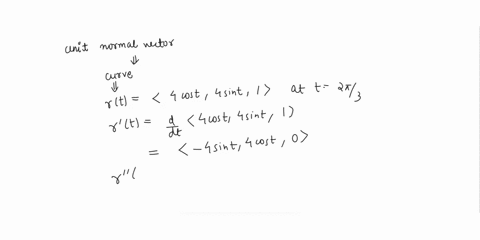 unit normal vector
⇓
curve
⇓
r(t) = < 4 cost, 4 sint, 1 > at t = 2π/3
r'(t) = d/dt <4cost, 4 sint, 1)
= < -4 sint, 4 cost, 0 >
r''(